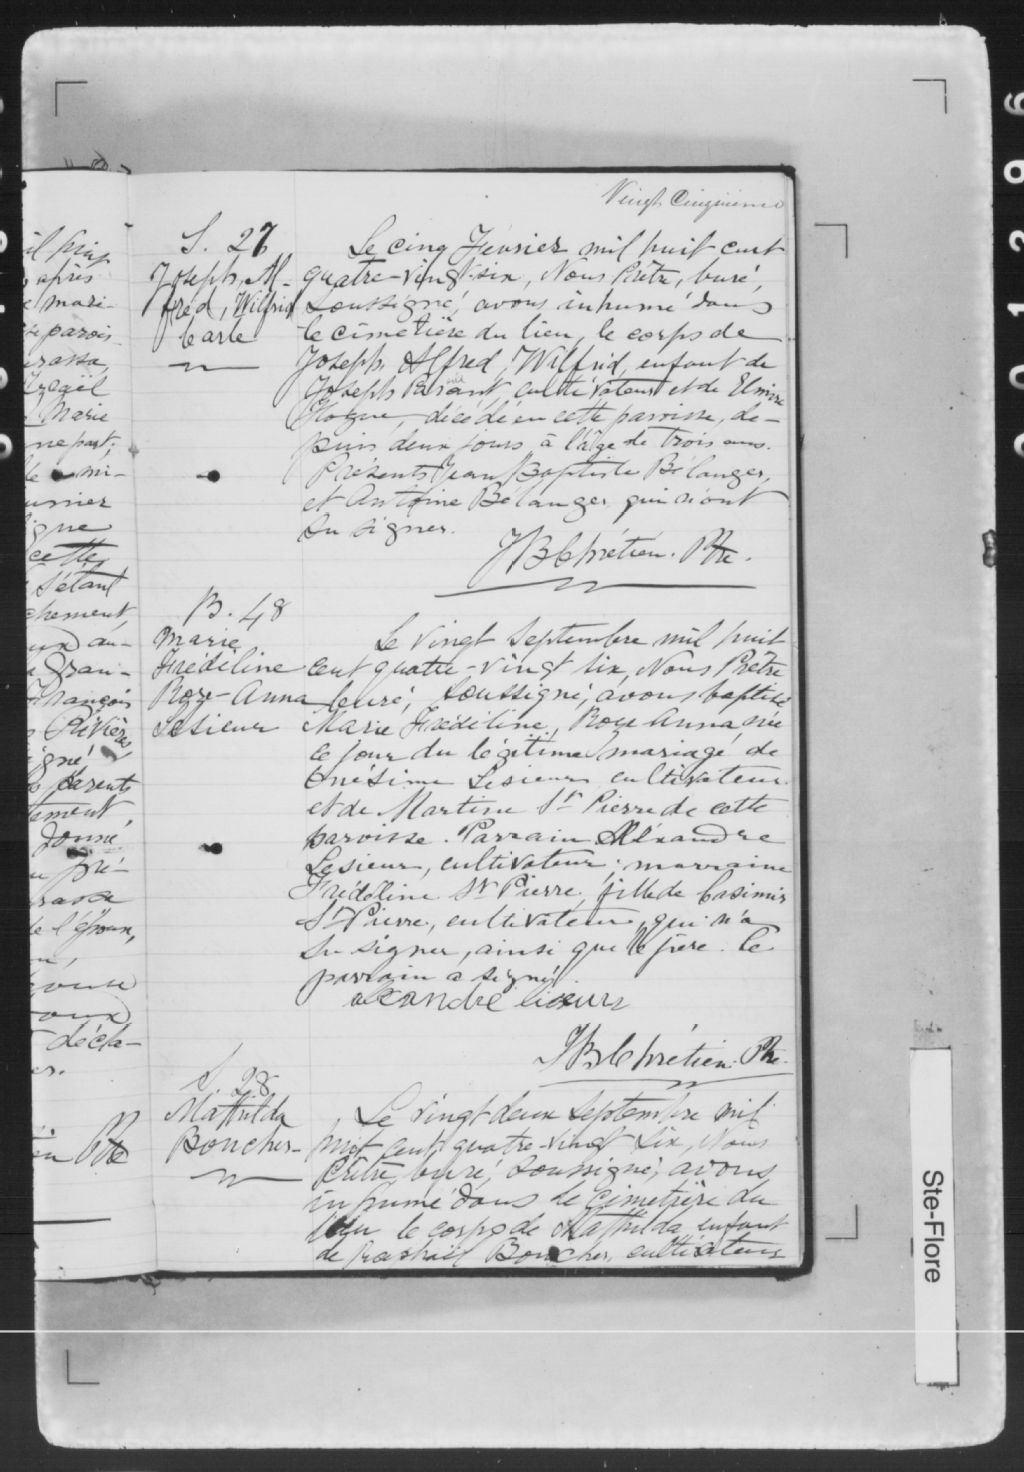 Vingt Cinquième
S. 27
Joseph, Al-
fred, Wilfrid
Carle
Le cinq Février mil huit cent
quatre-vingt-six, Nous Prêtre, Curé,
Soussigné, avons inhumé dans
le cimetière du lieu, le corps de
Joseph Alfred, Wilfrid, enfant de
Joseph cultivateur et de Elmire
décédé en cette paroisse, de-
puis deux jours à l'âge de trois ans.
Présents Jean Baptiste Bélanger,
et Antoine Bélanger qui n'ont
su signer.
JBChrétien. Ptre.
B. 48
Marie
Frédéline
Rose-Anna
Lesieur
Le vingt Septembre mil huit
cent quatre-vingt six, Nous Prêtre
Curé, Soussigné, avons baptisé
Marie Frédéline, Rose Anna née
ce jour du légitime mariage de
Onésime Lesieur cultivateur
et de Martine St Pierre de cette
paroisse. Parrain Aléxandre
Lesieur, cultivateur; marraine
Frédéline St Pierre, fille de Casimir
St Pierre, cultivateur, qui n'a
su signer, ainsi que le père. Le
parrain a signé
JBChrétien. Ptre.
S. 28
Mathilda
Boucher
Le vingt-deux Septembre mil
huit cent quatre-vingt six, Nous
Prêtre, Curé, Soussigné, avons
inhumé dans le cimetière du
lieu le corps de Mathilda enfant
de Boucher, cultivateur
il huit
après
mari-
parois-
Marie
ne part;
mi-
cette
s'étant
chement,
François
Rivières,
signé,
parents
ement,
donné
pré-
de l'époux,
décla-
Ptre
Ste-Flore